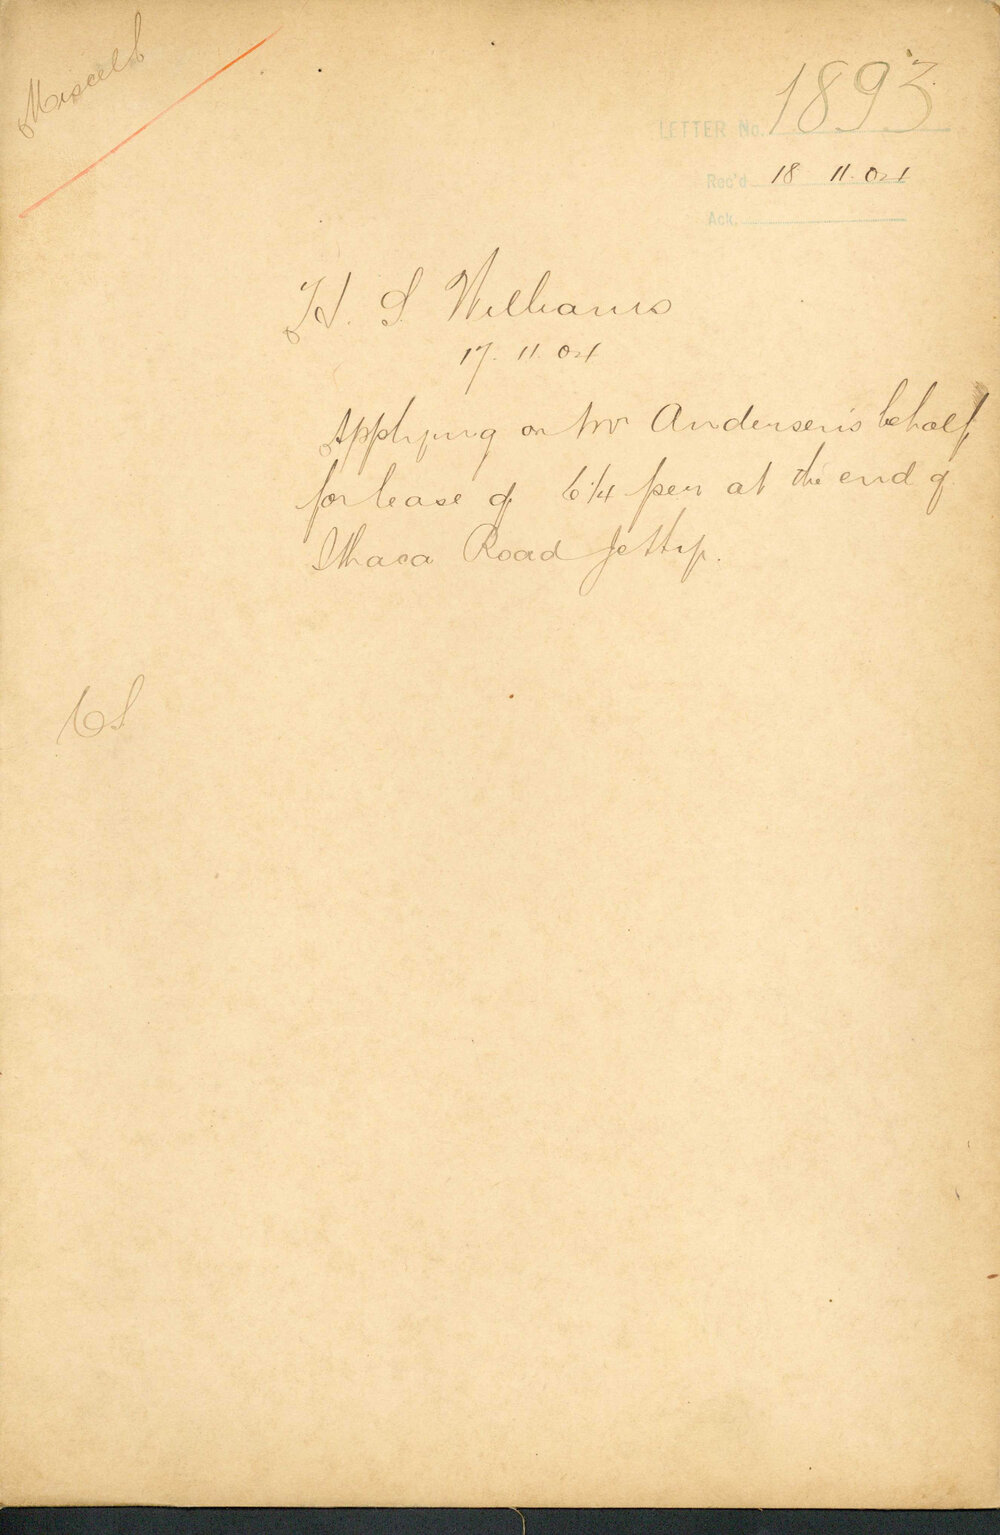 Miscell
LETTER No. 1893
Rec'd 18 11. 04
Ack.
H. S. Williams
17. 11. 04
Applying on Mr Andersen's behalf
for lease of 6¼ per at the end of
Ithaca Road Jetty.